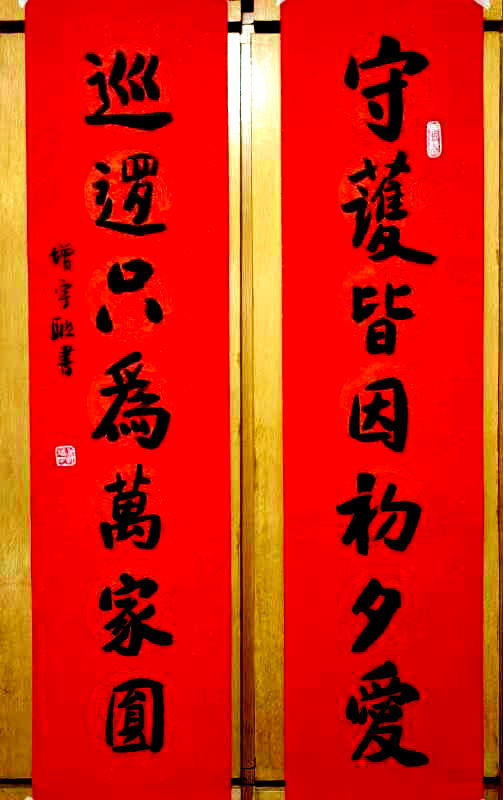 守護皆因初夕愛
巡邏只為萬家圓
增宇敬書